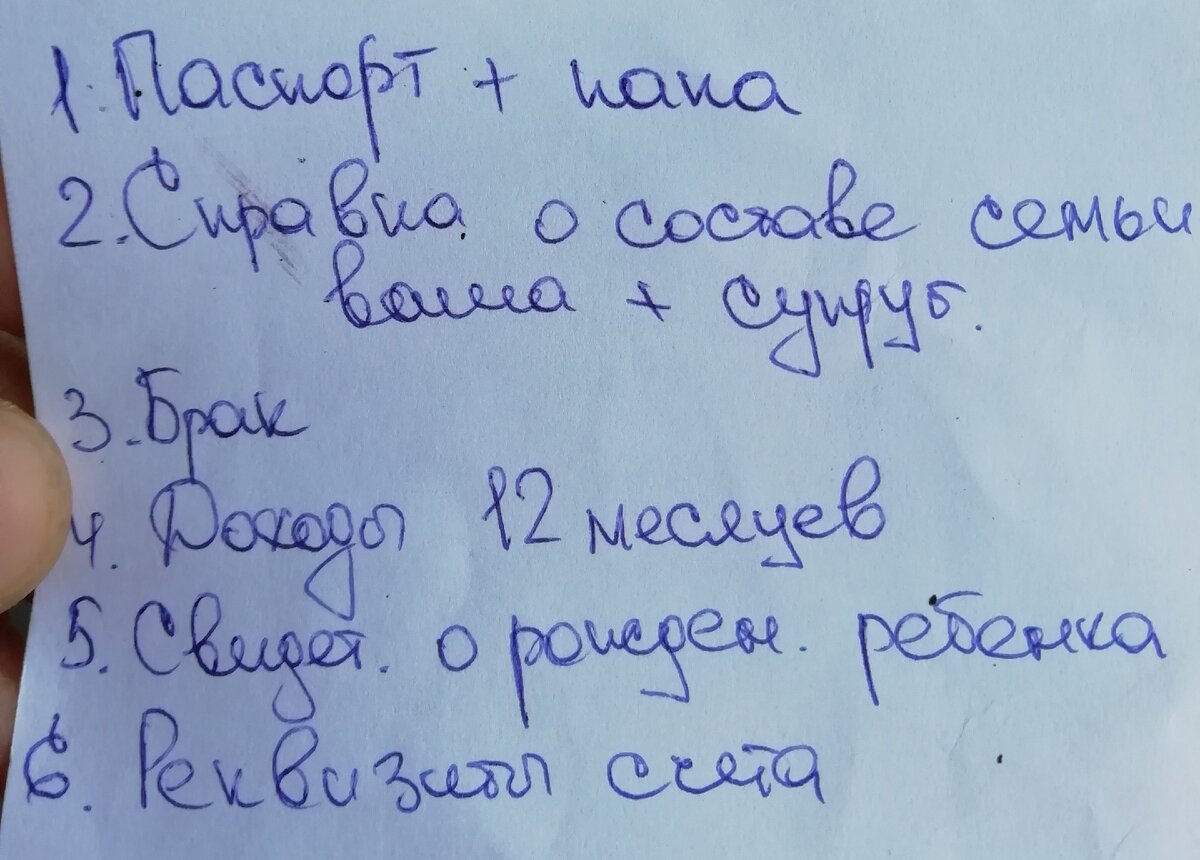 1. Паспорт + папа
2. Справка о составе семьи
ваша + супруг.
3. Брак
4. Доходы 12 месяцев
5. Свидет. о рожден. ребенка
6. Реквизиты счета